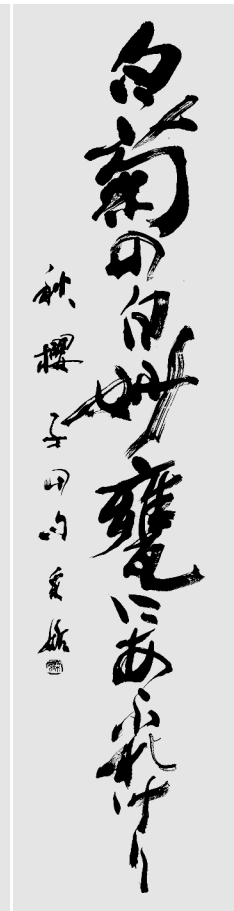 白菊の白妙甕にあふれけり
秋櫻子の句